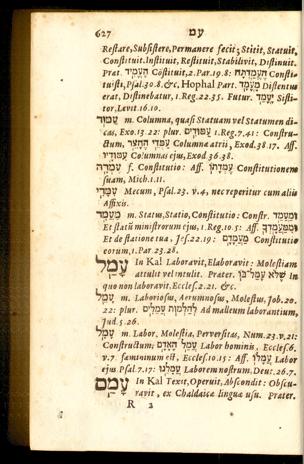 627 עם
Restare, Subsistere, Permanere fecit; Stitit, Statuit,
Constituit, Instituit, Restituit, Stabilivit, Distinuit.
Prat. הֶעֱמִיד Cōstituit, 2. Par. 19.8: Consti-
tuisti, Psal. 30.8. &c, Hophal Part. מָעֳמָד Distentus
erat, Distinebatur, 1. Reg. 22.35. Futur. יָעֳמַד Sisti-
tor, Levit. 16.10.
עַמּוּד m. Columna, quasi Statuam vel Statumen di-
cas, Exo. 13.22: plur. עַמּוּדִים 1. Reg. 7.41: Constru-
ctum, עַמּוּדֵי הֶחָצֵר Columnæ atrii, Exod. 38.17. Aff.
עַמּוּדָיו Columnas ejus, Exod. 36.38.
עֶמְדָּה f. Constitutio: Aff. עֶמְדָּתוֹ Constitutionem
suam, Mich. 1.11.
עִמָּדִי Mecum, Psal. 23. v. 4, nec reperitur cum aliis
Affixis.
מַעֲמָד m. Status, Statio, Constitutio: Constr. וּמַעֲמַד
Et statū ministrorum ejus, 1. Reg. 10.5: Aff. וּמִמַּעֲמָדְךָ
Et de statione tua, Jes. 22.19: מַעֲמָדָם Constitutio
eorum, 1. Par. 23.28.
עָמַל In Kal Laboravit, Elaboravit: Molestiam
attulit vel intulit. Præter. שֶׁלֹּא עָמַל־בּוֹ In
quo non laboravit, Eccles. 2.21. &c.
עָמֵל m. Laboriosus, Ærumnosus, Molestus, Job. 20.
22: plur. לְהַלְמוּת עֲמֵלִים Ad malleum laborantium,
Jud. 5.26.
עָמָל m. Labor, Molestia, Perversitas, Num. 23. v. 21:
Constructum; עֲמַל הָאָדָם Labor hominis, Eccles. 6.
v. 7. fœmininum est, Eccles. 10.15: Aff. עֲמָלוֹ Labor
ejus Psal. 7.17: עֲמָלֵנוּ Laborem nostrum, Deut. 26.7.
עָמַם In Kal Texit, Operuit, Abscondit: Obscu-
ravit, ex Chaldaica lingua usu. Præter.
R 2